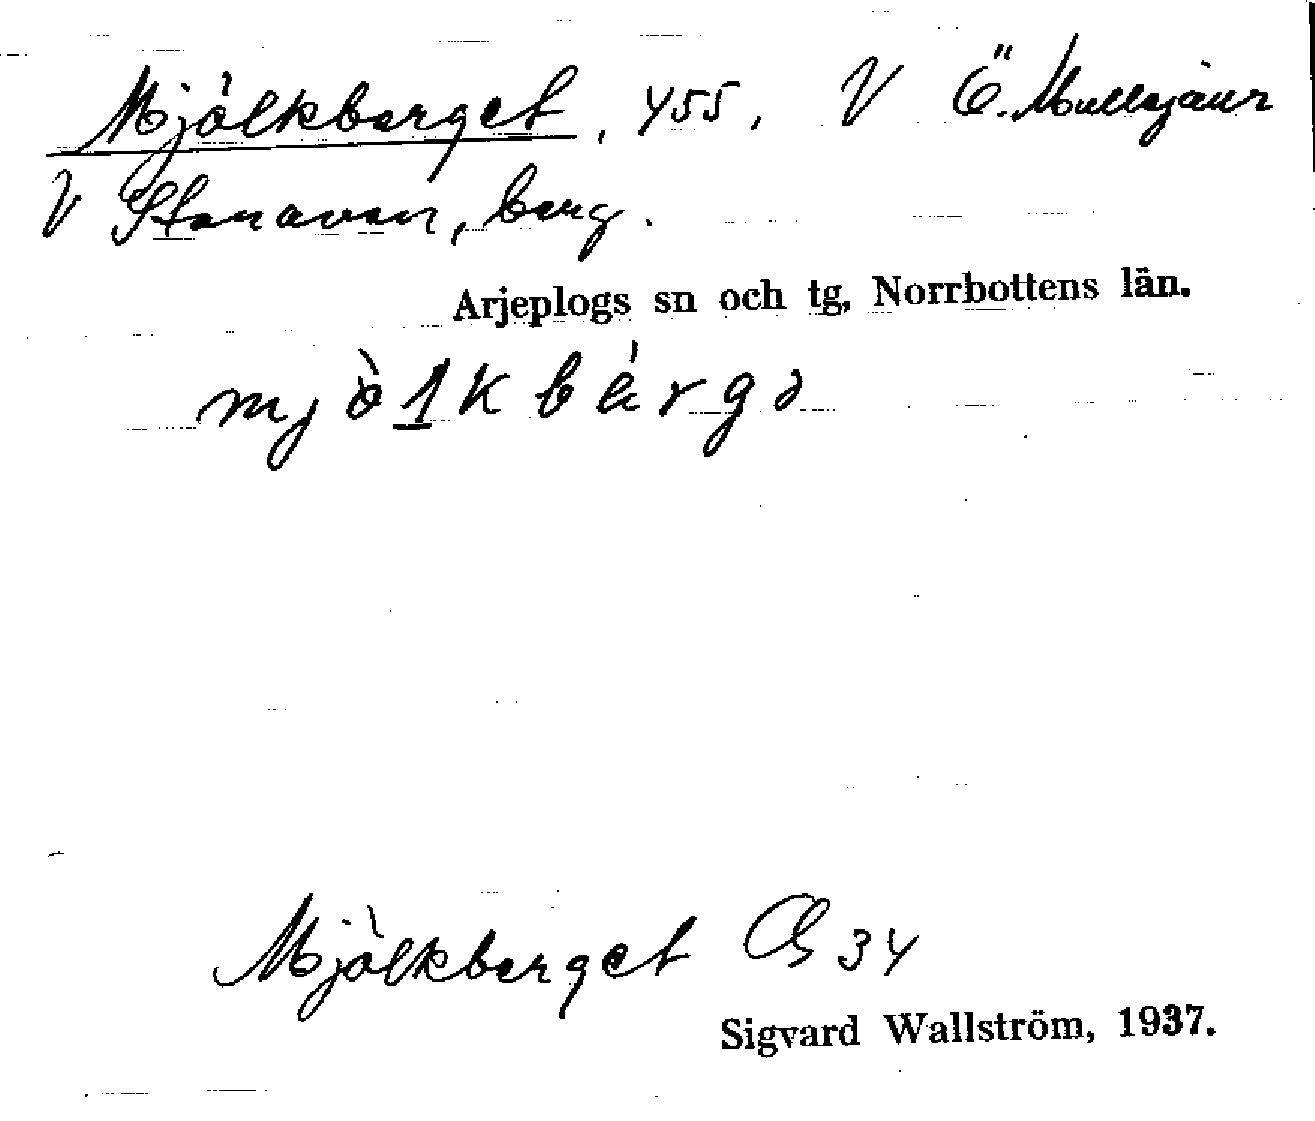 Mjölkberget, 455, V Ö. Mullojaur
V Storavan, berg.
Arjeplogs sn och tg, Norrbottens län.
mjòlkbárgə
Mjölkberget GS 34
Sigvard Wallström, 1937.